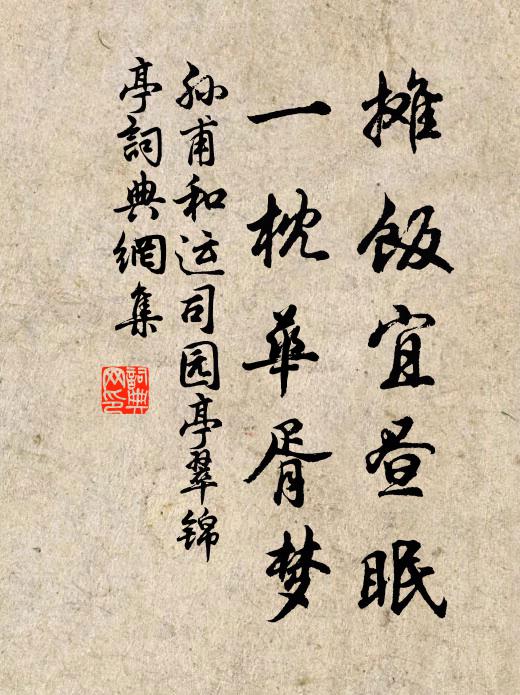 摊饭宜昼眠
一枕华胥梦
孙甫和运司园亭翠锦
亭詞典網集
詞典
网印